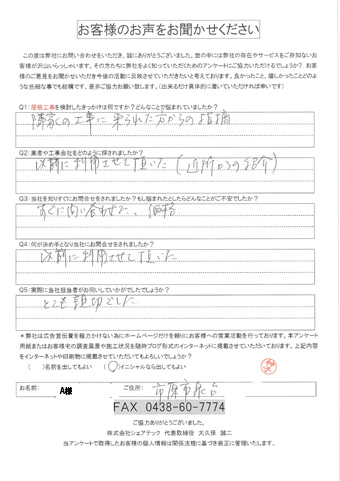 お客様のお声をお聞かせください
この度は弊社にお問い合わせをいただき、誠にありがとうございました。世の中には弊社の存在やサービスをご存知ないお
客様が沢山いらっしゃいます。その方たちに弊社をよく知っていただくためのアンケートにご協力いただけるでしょうか？ お客
様のご意見をお聞かせいただき今後の活動に反映させていただきたいと考えております。良かったこと、嬉しかったことどのよ
うな些細な事でも結構です。是非ご協力お願い致します。（出来るだけ具体的に書いていただければ幸いです）
Q1：屋根工事を検討したきっかけは何ですか？どんなことで悩まれていましたか？
隣家の工事に来られた方からの指摘
Q2：業者や工事会社をどのように探されましたか？
以前に利用させて頂いた（近所からの紹介）
Q3：当社を知りすぐにお問合せをされましたか？もし悩まれたとしたらどんなことがご不安でしたか？
すぐに問い合わせた、価格
Q4：何が決め手となり当社にお問合せをされましたか？
以前に利用させて頂いた
Q5：実際に当社担当者がお伺いしていかがでしたでしょうか？
とても親切でした
＊弊社は広告宣伝費を極力かけない為にホームページだけを頼りにお客様への営業活動を行っております。本アンケート
用紙またはお客様宅の調査風景や施工状況を随時ブログ形式のインターネットに掲載させていただいております。上記内容
をインターネットや印刷物に掲載させていただいてもよろしいでしょうか？
（ ）名前を出してもよい （○）イニシャルなら出してもよい
お名前： A様 ご住所： 市原市泉台
FAX 0438-60-7774
ご協力ありがとうございました。
株式会社シェアテック 代表取締役 大久保 誠二
当アンケートで取得したお客様の個人情報は関係法規に基づき厳正に管理いたします。